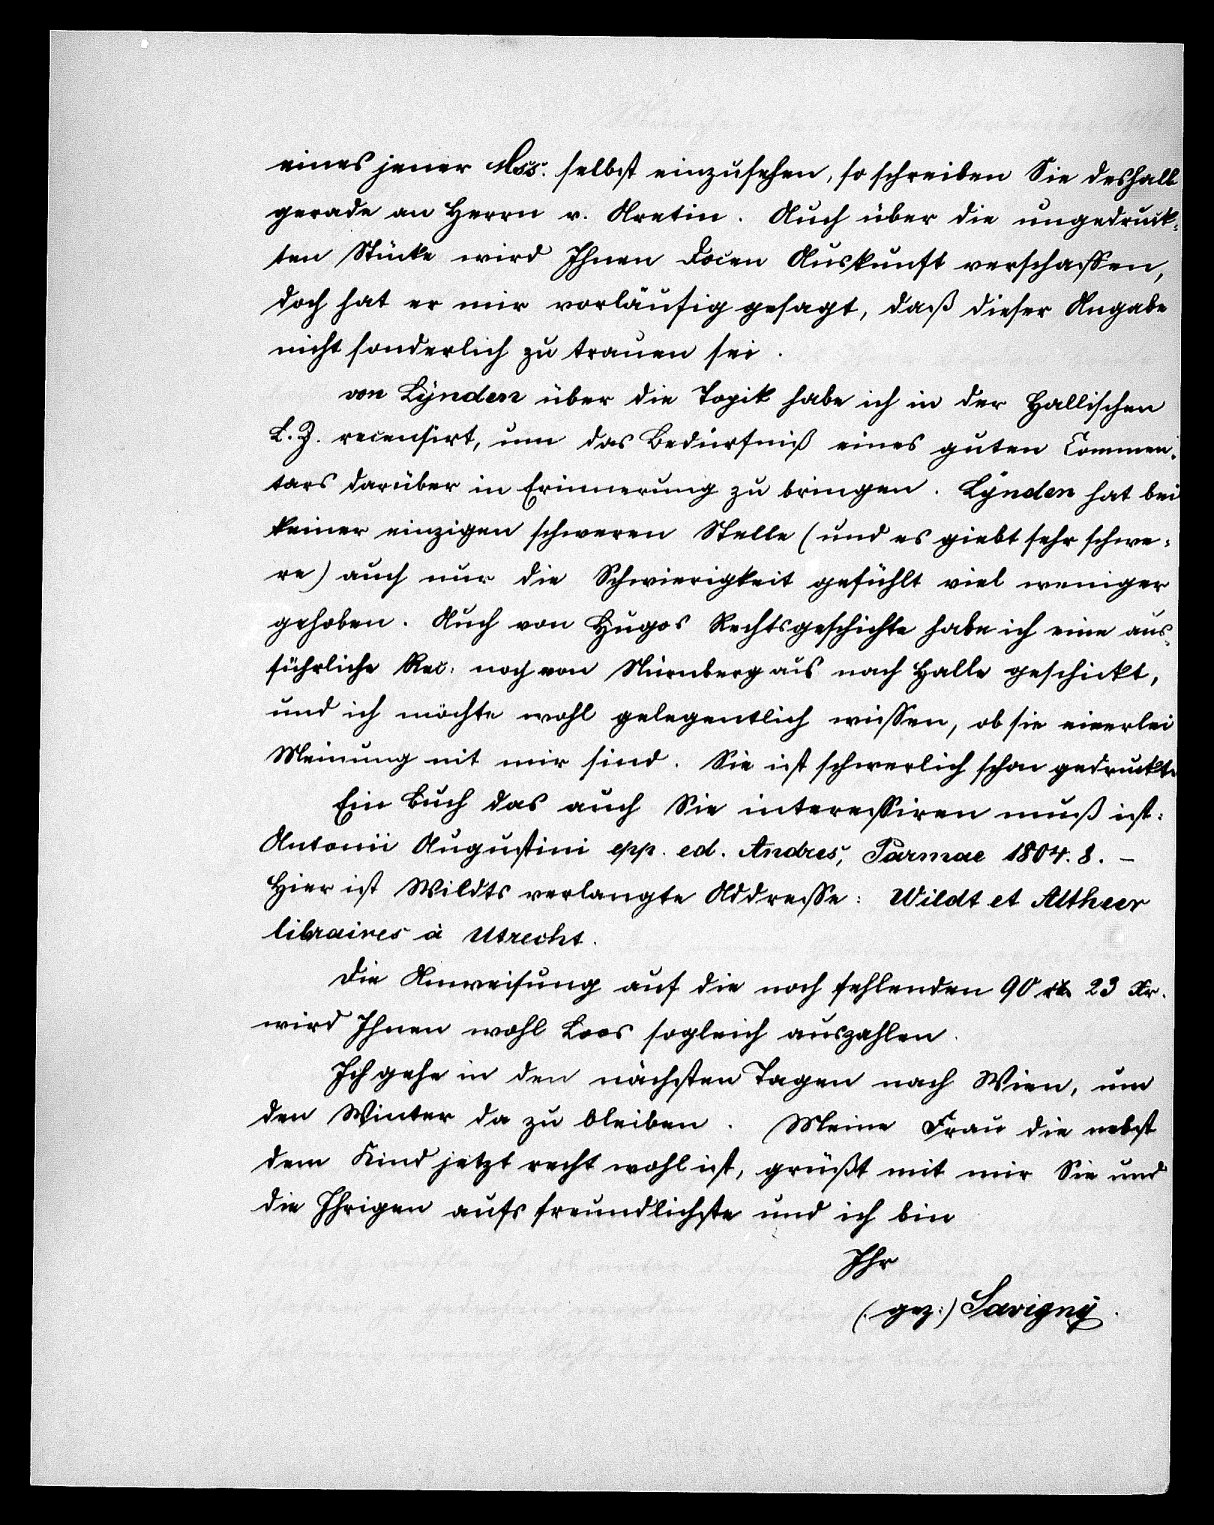 eines jener Mss. selbst einzusehen, so schreiben Sie deshalb
gerade an Herrn v. Aretin. Auch über die ungedruck-
ten Stücke wird Ihnen Docen Auskunft verschaffen,
doch hat er mir vorläufig gesagt, daß dieser Angabe
nicht sonderlich zu trauen sei.
von Lÿnden über die Topik habe ich in der Hallischen
L. Z. recensirt, um das Bedürfniß eines guten Commen-
tars darüber in Erinnerung zu bringen. Lÿnden hat bei
keiner einzigen schweren Stelle (und es giebt sehr schwe-
re) auch nur die Schwierigkeit gefühlt viel weniger
gehoben. Auch von Hugos Rechtsgeschichte habe ich eine aus-
führliche Rec. noch von Nürnberg aus nach Halle geschickt,
und ich möchte wohl gelegentlich wissen, ob sie einerlei
Meinung mit mir sind. Sie ist schwerlich schon gedruckt.
Ein Buch das auch Sie interessiren muß ist:
Antonii Augustini epp. ed. Andres, Parmae 1804. 8. –
Hier ist Wildts verlangte Addresse: Wildt et Altheer
libraires à Utrecht.
Die Anweisung auf die noch fehlenden 90 rh 23 Xr.
wird Ihnen wohl Loos sogleich auszahlen.
Ich gehe in den nächsten Tagen nach Wien, um
den Winter da zu bleiben. Meine Frau die nebst
dem Kind jetzt recht wohl ist, grüßt mit mir Sie und
die Ihrigen aufs freundlichste und ich bin
Ihr
(gez:) Savignÿ.